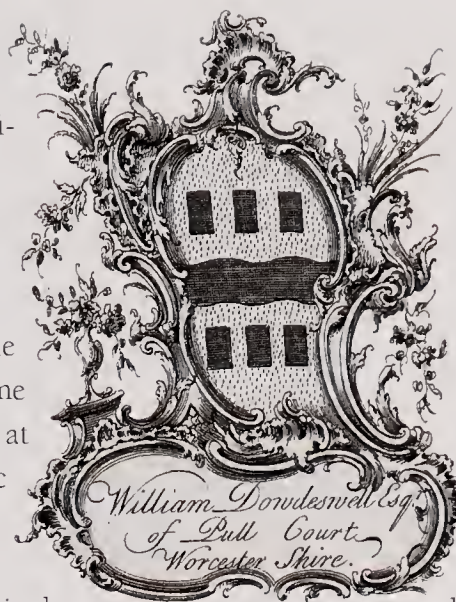 William Dowdeswell Esq.
of Pull Court
Worcester Shire.
at